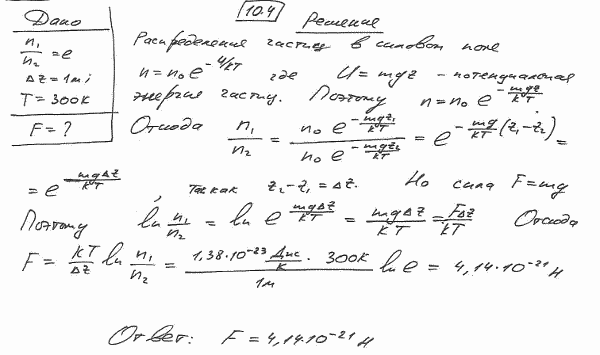 10.4
Дано
n₁/n₂ = e
Δz = 1м;
T = 300К
F = ?
Решение
Распределение частиц в силовом поле
n = n₀ e^(-U/kT) где U = mgz - потенциальная
энергия частиц. Поэтому n = n₀ e^(-mgz/kT).
Отсюда n₁/n₂ = n₀ e^(-mgz₁/kT) / n₀ e^(-mgz₂/kT) = e^(-mg/kT (z₁-z₂)) =
= e^(mgΔz/kT), так как z₂-z₁ = Δz. Но сила F = mg
Поэтому ln n₁/n₂ = ln e^(mgΔz/kT) = mgΔz/kT = FΔz/kT Отсюда
F = kT/Δz ln n₁/n₂ = 1,38·10⁻²³ Дж/К · 300К / 1м ln e = 4,14·10⁻²¹ Н
Ответ: F = 4,14·10⁻²¹ Н